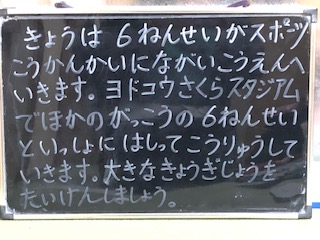 きょうは6ねんせいがスポーツ
こうかんかいにながいこうえんへ
いきます。ヨドコウさくらスタジアム
でほかのがっこうの6ねんせい
といっしょにはしってこうりゅうして
いきます。大きなきょうぎじょうを
たいけんしましょう。